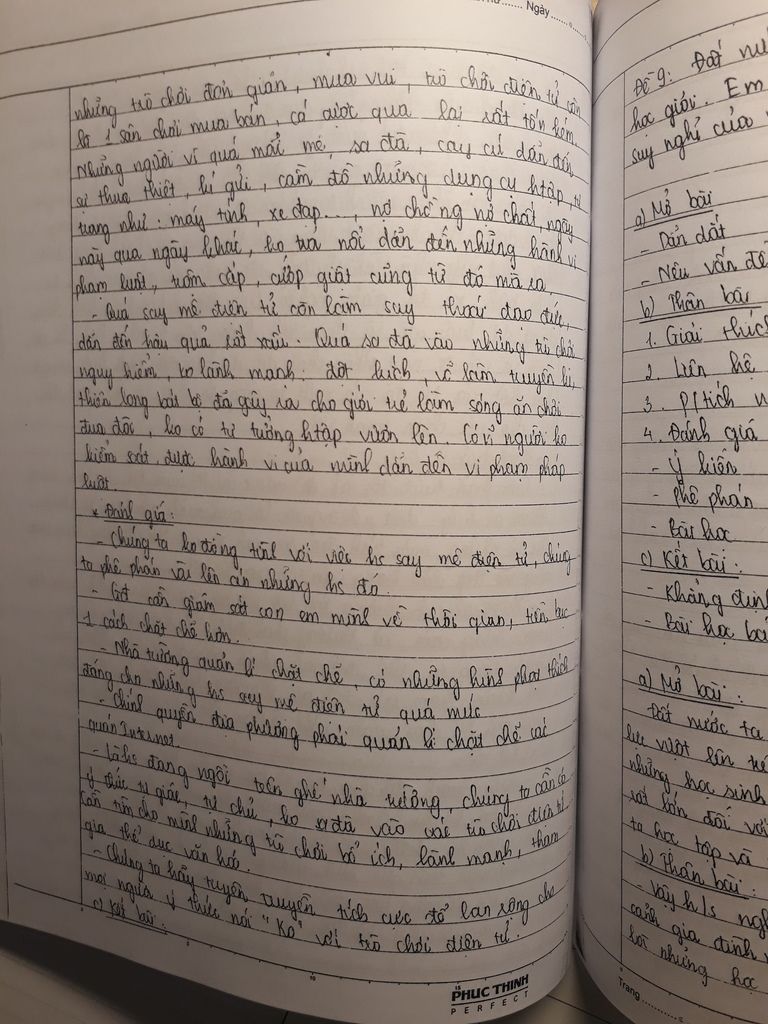 Ngày
những trò chơi đơn giản, mua vui, trò chơi điện tử còn
là 1 sân chơi mua bán, cá cược qua lại rất tốn kém.
Những người vì quá mải mê, sa đà, cay cú dẫn đến
sự thua thiệt, kí gửi, cầm đồ những dụng cụ htập, tư
trang như: máy tính, xe đạp..., nợ chồng nợ chất, ngày
này qua ngày khác, ko trả nổi dẫn đến những hành vi
phạm luật, trộm cắp, cướp giật cũng từ đó mà ra
- Quá say mê điện tử còn làm suy thoái đạo đức,
dẫn đến hậu quả rất xấu. Quá sa đà vào những trò chơi
nguy hiểm, ko lành mạnh: đột kích, võ lâm truyền kì,
thiên long bát bộ đã gây ra cho giới trẻ làm sóng ăn chơi
đua đòi, ko có tư tưởng htập vươn lên. Có n~ người ko
kiểm soát được hành vi của mình dẫn đến vi phạm pháp
luật.
* Đánh giá:
- Chúng ta ko đồng tình với việc hs say mê điện tử, chúng
ta phê phán và lên án những hs đó.
- Gđ cần giám sát con em mình về thời gian, tiền bạc
1 cách chặt chẽ hơn.
- Nhà trường quản lí chặt chẽ, có những hình phạt thích
đáng cho những hs say mê điện tử quá mức
- Chính quyền địa phương phải quản lí chặt chẽ các
quán Internet.
- Là hs đang ngồi trên ghế nhà trường, chúng ta cần có
ý thức tự giác, tự chủ, ko sa đà vào các trò chơi điện tử.
Cần tìm cho mình những trò chơi bổ ích, lành mạnh, tham
gia thể dục văn hoá.
- Chúng ta hãy tuyên truyền tích cực để lan rộng cho
mọi người ý thức nói "Ko" với trò chơi điện tử.
c) Kết bài:
PHUC THINH
PERFECT
Đề 9: Đất nư
học giỏi. Em
suy nghĩ của
a) Mở bài
- Dẫn dắt
- Nêu vấn đề
b) Thân bài
1. Giải thích
2. Liên hệ
3. P/tích
4. Đánh giá
- Ý kiến
- Phê phán
- Bài học
c) Kết bài:
- Khẳng định
- Bài học bả
a) Mở bài:
- Đất nước ta
lực vượt lên
những học sinh
rất lớn đối với
ta học tập và
b) Thân bài:
- Vậy h/s ngh
cảnh gia đình
lời những học
Trang